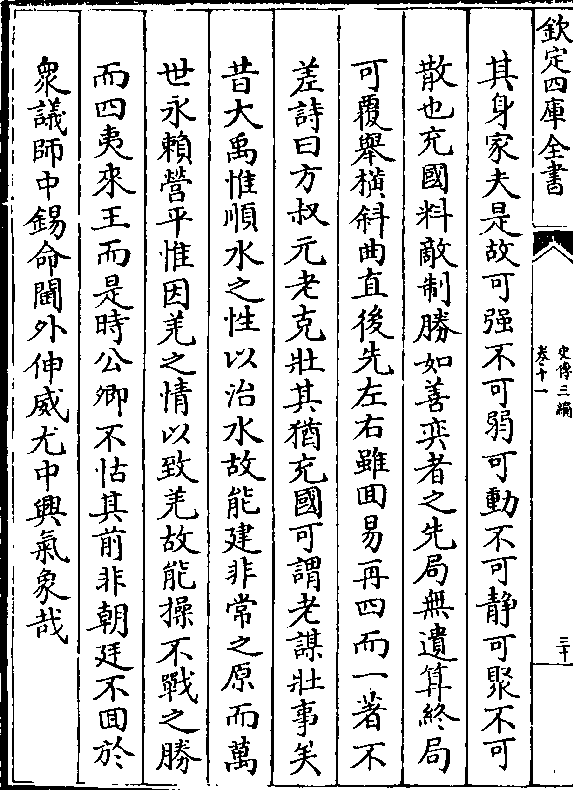 欽定四庫全書
史傳三編
卷十一
三十
其身家夫是故可强不可弱可動不可静可聚不可
散也充國料敵制勝如善奕者之先局無遺算終局
可覆舉橫斜曲直後先左右雖囬易再四而一著不
差詩曰方叔元老克壯其猶充國可謂老謀壯事矣
昔大禹惟順水之性以治水故能建非常之原而萬
世永賴營平惟因羌之情以致羌故能操不戰之勝
而四夷來王而是時公卿不怙其前非朝廷不囬於
衆議師中錫命閫外伸威尤中興氣象哉